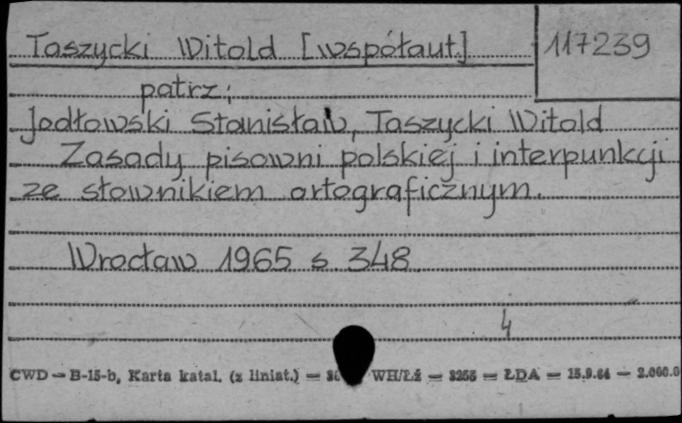 Taszycki Witold [współaut.] 117239
patrz:
Jodłowski Stanisław, Taszycki Witold
Zasady pisowni polskiej i interpunkcji
ze słownikiem ortograficznym.
Wrocław 1965 s 348
4
CWD — B-15-b, Karta katal. (z liniat.) — WH/Łź — 3255 — ŁDA — 15.9.64 — 2.000.0